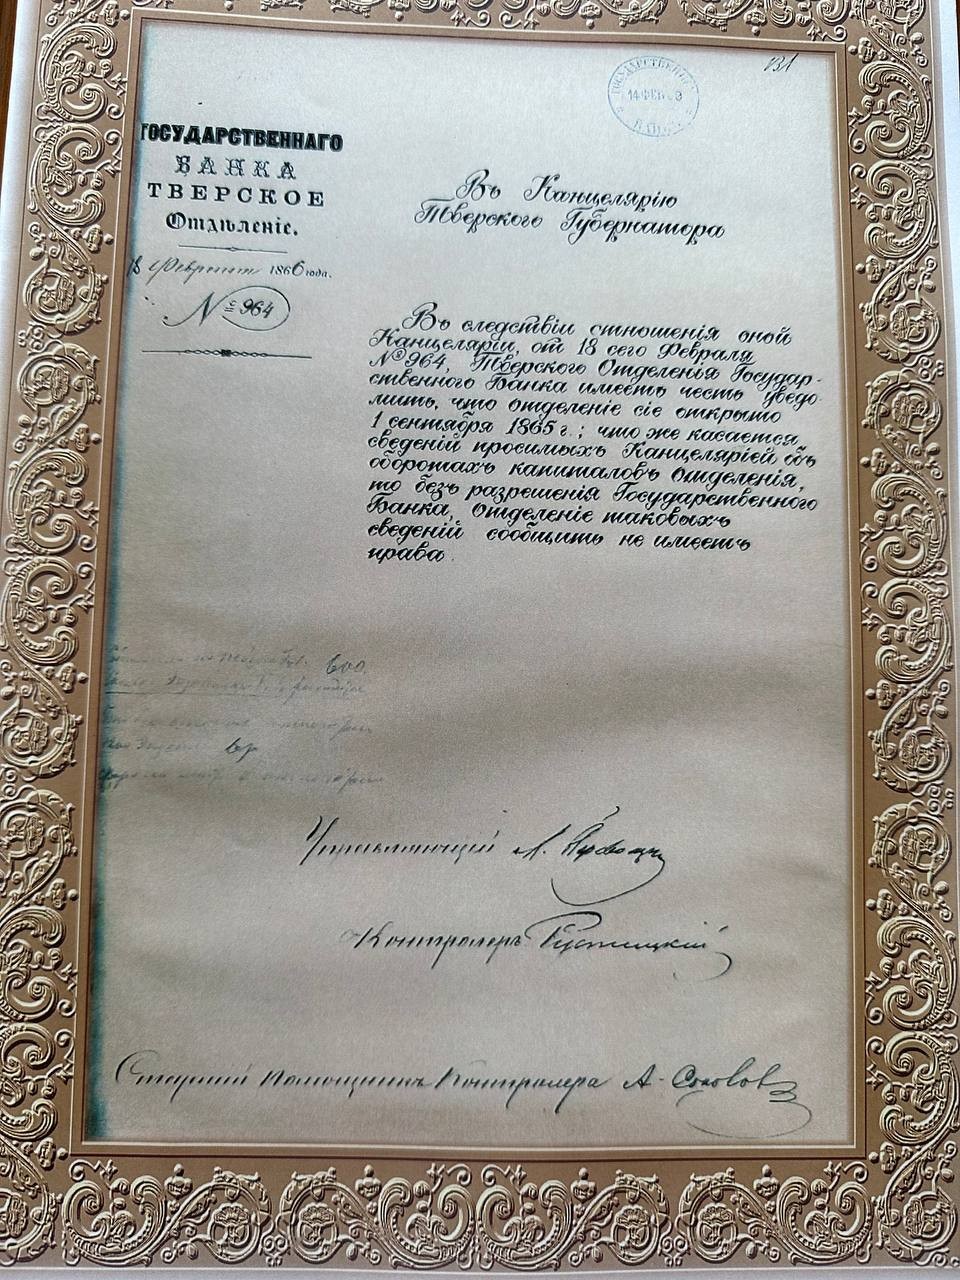 131
ГОСУДАРСТВЕННЫЙ
14 ФЕВ
БАНКЪ
ГОСУДАРСТВЕННАГО
БАНКА
ТВЕРСКОЕ
Отдѣленіе.
18 Февраля 1866 года.
№ 964
Въ Канцелярію
Тверского Губернатора
Въ следствіи стношенія оной
Канцеляріи, от 18 сего Февраля
№ 964, Тверского Отделенья Государ-
ственного Банка имеетъ честь уведо
мить, что отделеніе сіе открыто
1 сентября 1865 г.; что же касается
сведеній просимыхъ Канцеляріей объ
оборотахъ капиталовъ Отделенія,
то безъ разрешенія Государственного
Банка, Отделеніе таковыхъ
сведеній сообщить не имеетъ
права.
600
Управляющій А.
Контролеръ
Старшій Помощникъ Контролера А. Соколовъ